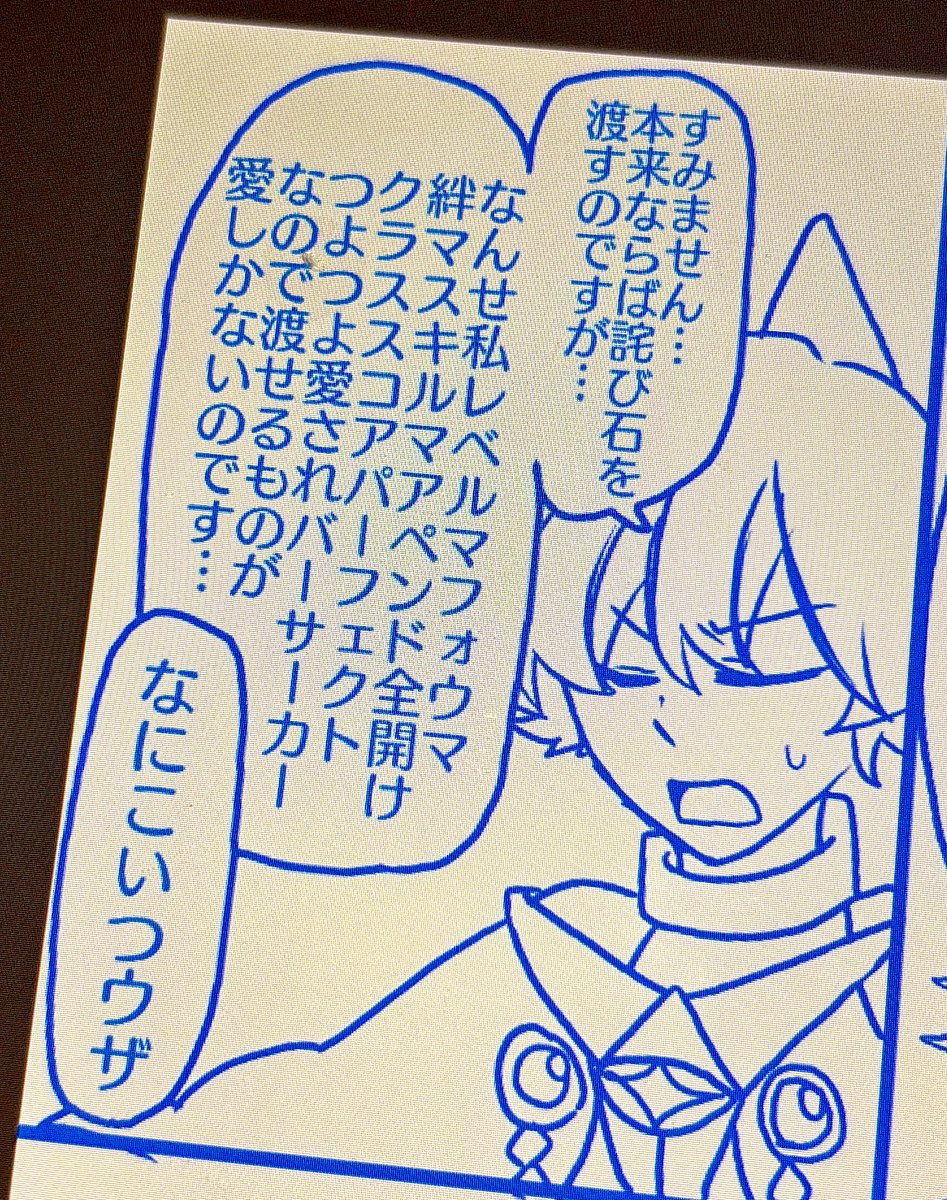 すみません…
本来ならば詫び石を
渡すのですが…
なんせ私レベルマフォウマ
絆マスキルマアペンド全開け
クラススコアパーフェクト
つよつよ愛されバーサーカー
なので渡せるものが
愛しかないのです…
なにこいつウザ